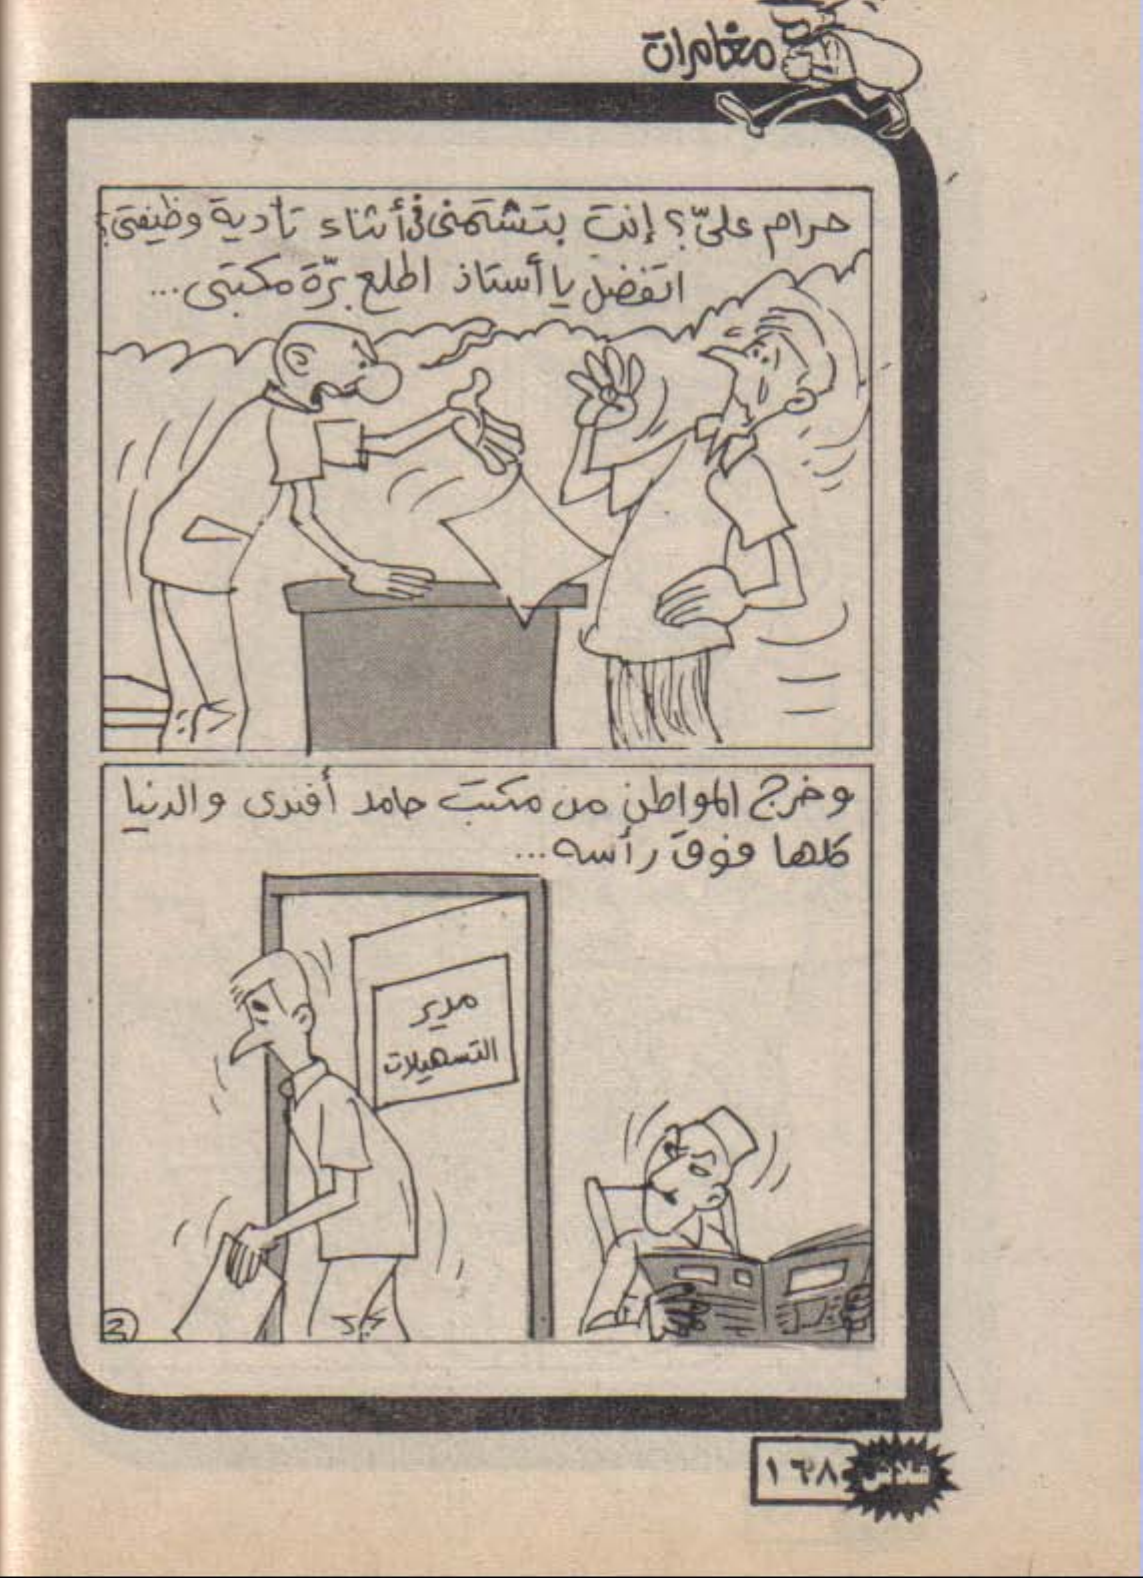 مغامرات
حرام علىّ؟ إنت بتشتمنى فى أثناء تأدية وظيفتى؟
اتفضل يا أستاذ اطلع برّة مكتبى...
وخرج المواطن من مكتب حامد أفندى والدنيا
كلها فوق رأسه...
مدير
التسهيلات
فلاش
١٦٨